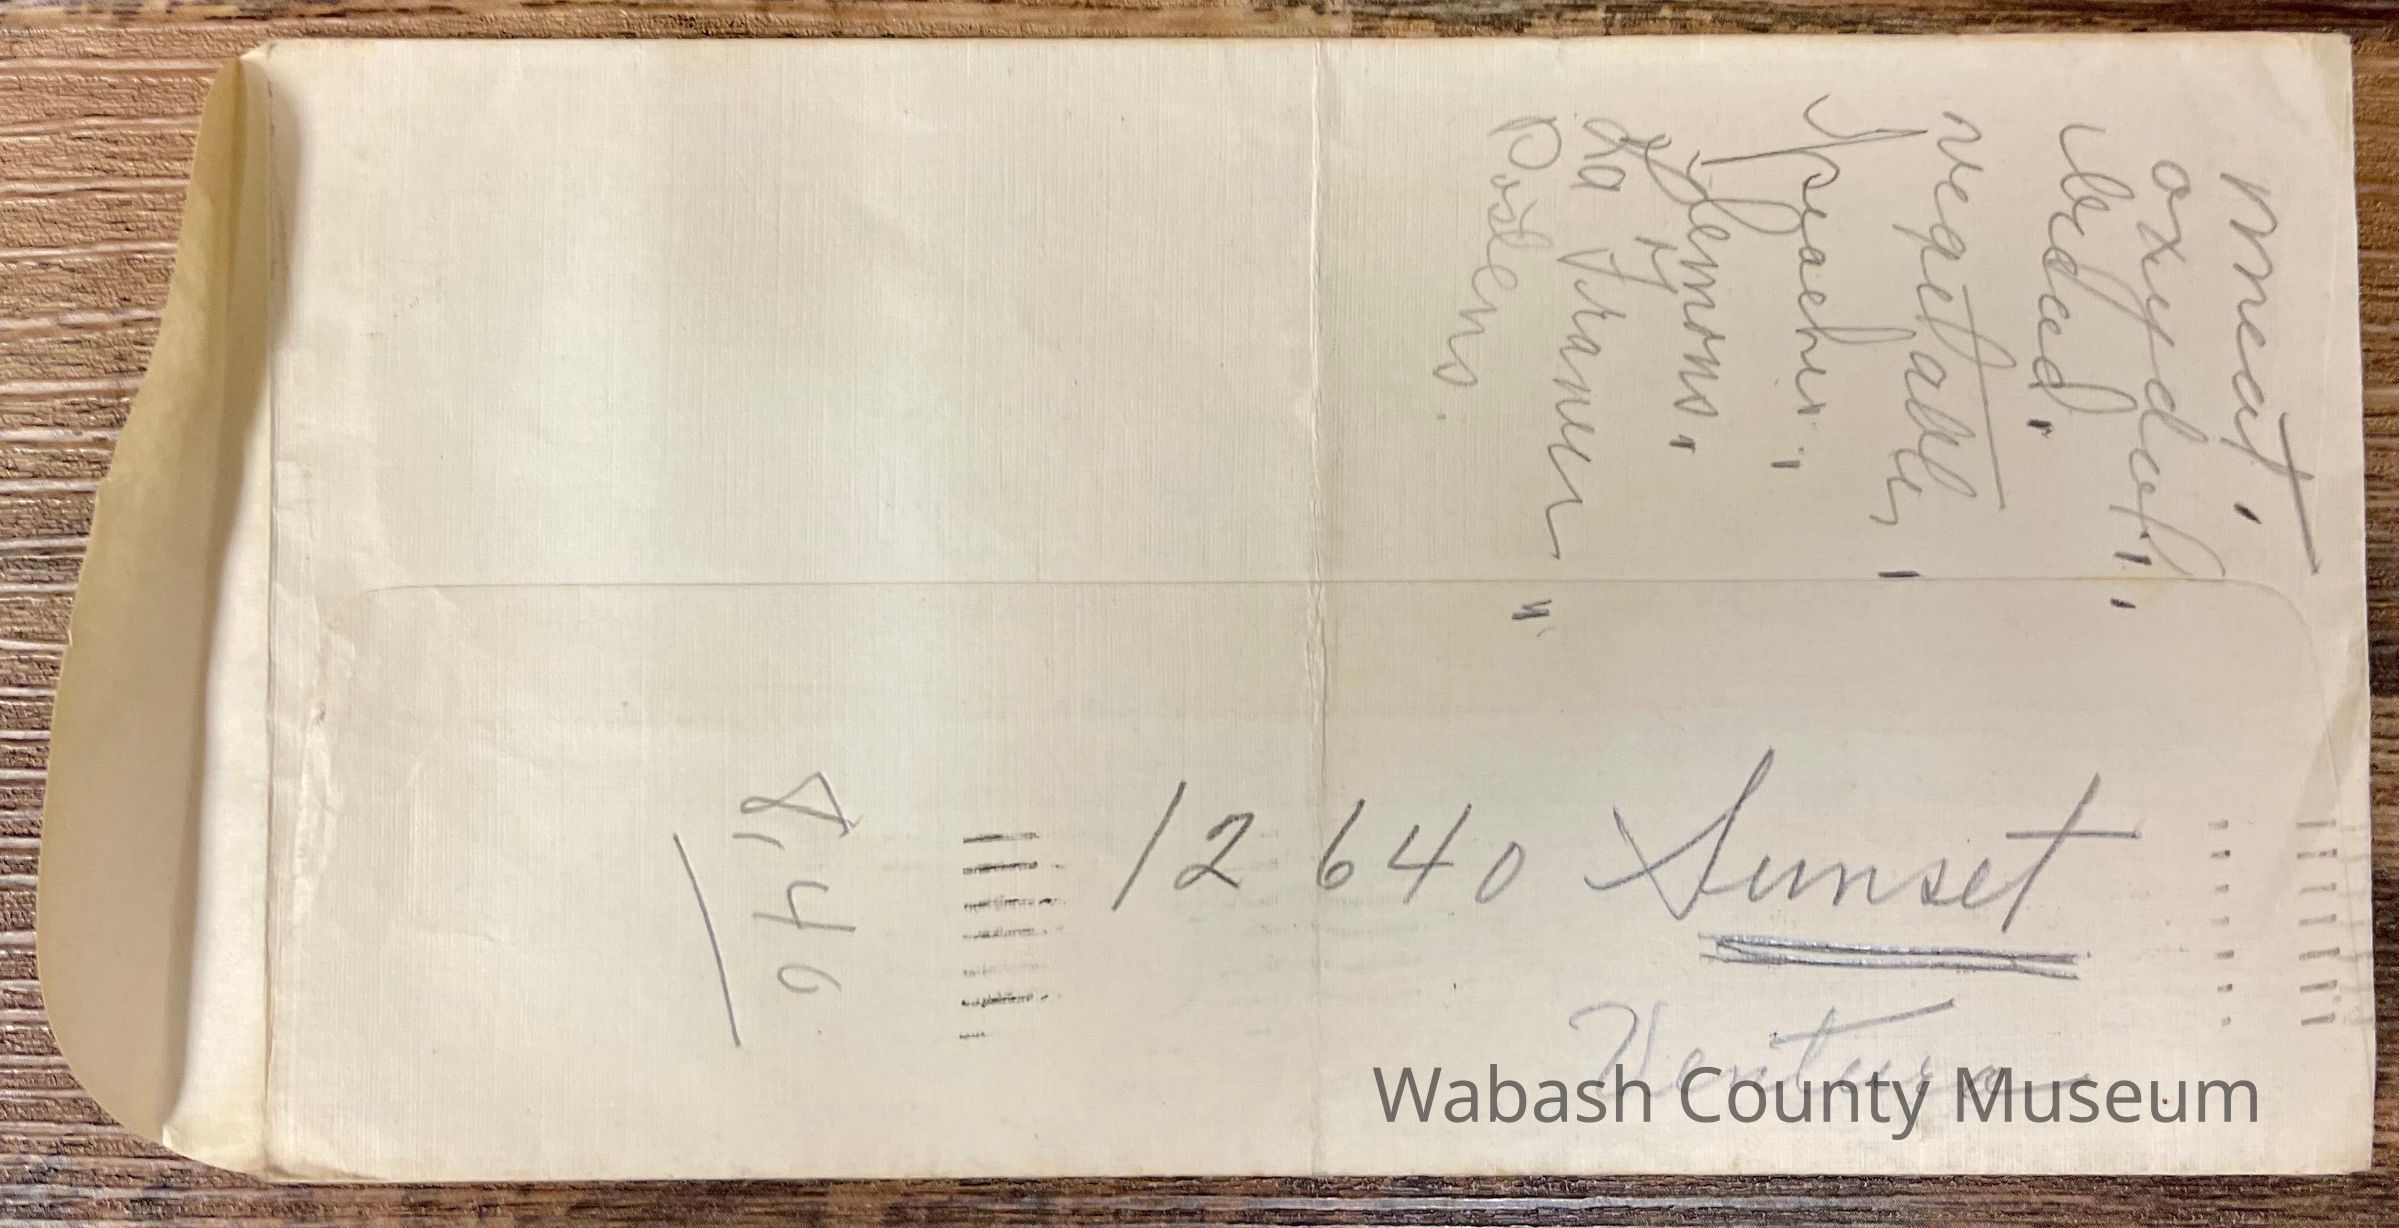 meat
oxydol
bread
vegetables
peaches
lemons
La France
Postens.
12640 Sunset
Ventura
Wabash County Museum